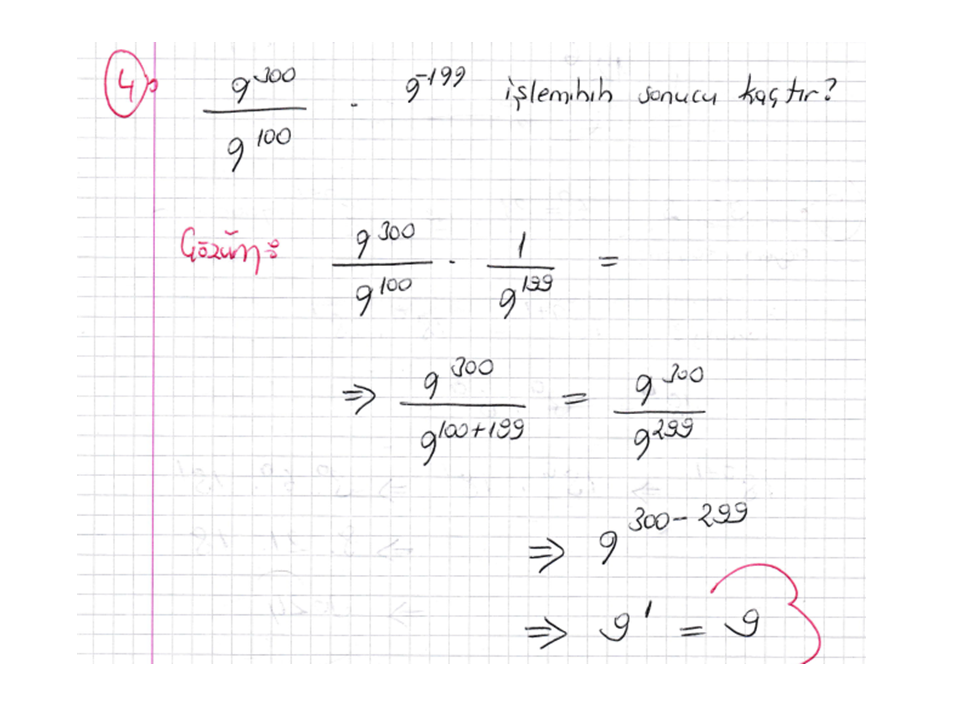 4. 9^300 / 9^100 · 9^-199 işleminin sonucu kaçtır?
Çözüm: 9^300 / 9^100 · 1 / 9^199 =
⇒ 9^300 / 9^(100+199) = 9^300 / 9^299
⇒ 9^(300-299)
⇒ 9^1 = 9